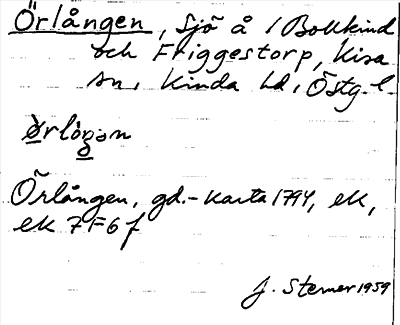 Örlången, sjö å 1 Bokkind
och Friggestorp, Kisa
sn, Kinda hd, Östg. l.
Örlången, gd.-karta 1794, ek,
ek 7F6f
J. Sterner 1959